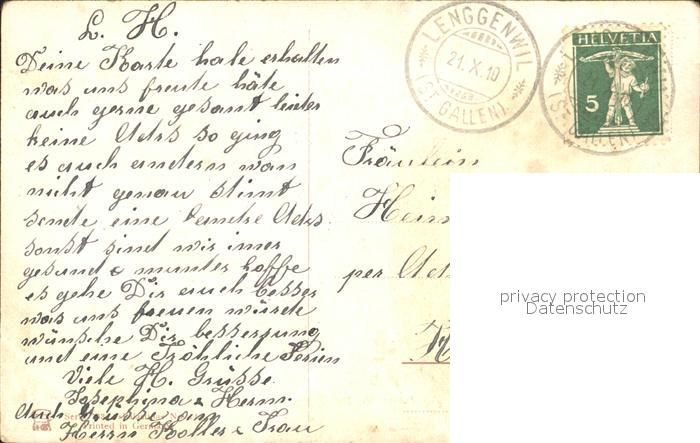 L. H.
Deine Karte habe erhalten
was uns freute häte
auch gerne gesant leider
keine Adrs so ging
es auch andern wan
nicht genau stimt
sende eine andre Adrs
sonst sind wir imer
gesund & munter hoffe
es gehe Dir auch besser
was uns freuen würde
wünsche Dir besserung
und eine Fröhliche Ferien
Viele H. Grüsse
Josephina & Herm.
Auch Grüsse an
Herrn Koller & Frau
Printed in Germany
LENGGENWIL
21.X.10
(ST. GALLEN)
HELVETIA
5
Fräulein
per
privacy protection
Datenschutz